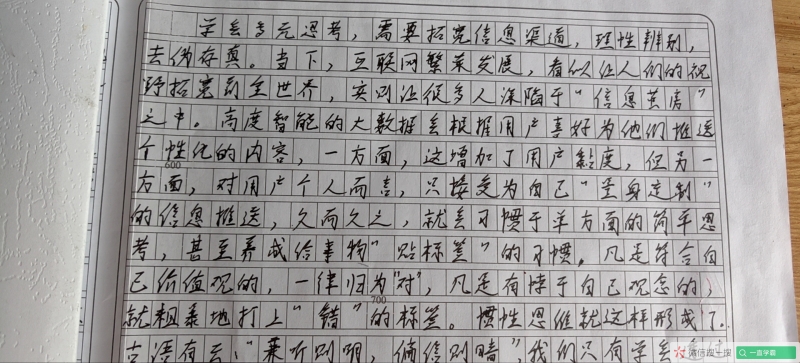 学会多元思考，需要拓宽信息渠道，理性辨别，
去伪存真。当下，互联网繁荣发展，看似让人们的视
野拓宽到全世界，实则让很多人深陷于“信息茧房”
之中。高度智能的大数据会根据用户喜好为他们推送
个性化的内容，一方面，这增加了用户黏度，但另一
600
方面，对用户个人而言，只接受为自己“量身定制”
的信息推送，久而久之，就会习惯于单方面的简单思
考，甚至养成给事物“贴标签”的习惯。凡是符合自
己价值观的，一律归为“对”，凡是有悖于自己观念的，
700
就粗暴地打上“错”的标签。惯性思维就这样形成了。
古语有云：“兼听则明，偏信则暗”，我们只有学会
一言学霸